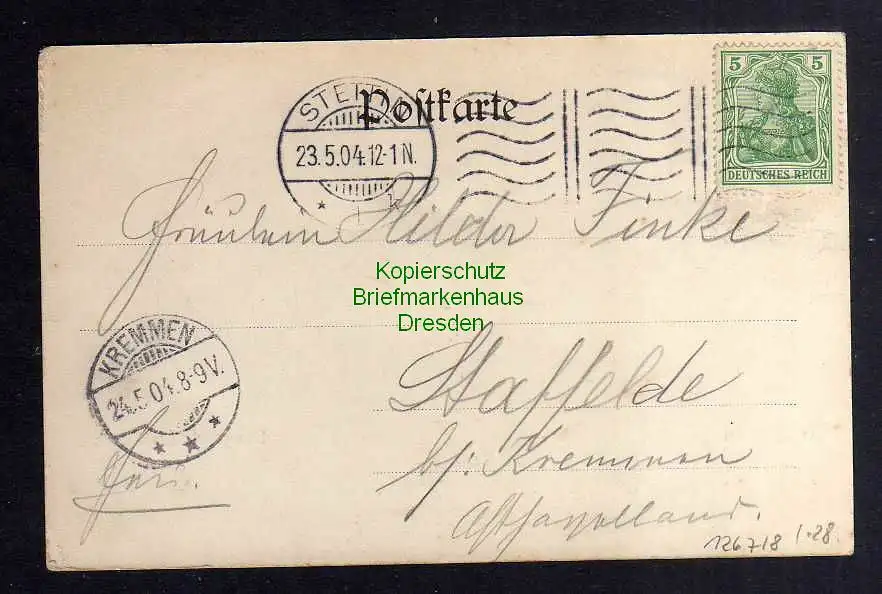 Postkarte
STETTIN
23.5.04.12-1N.
* 1 k
5 5
DEUTSCHES REICH
Fräulein Hilda Finke
Kopierschutz
Briefmarkenhaus
Dresden
KREMMEN
24.5.04.8-9V.
* * *
Staffelde
b/. Kremmen
Osthavelland.
126718 1.28.